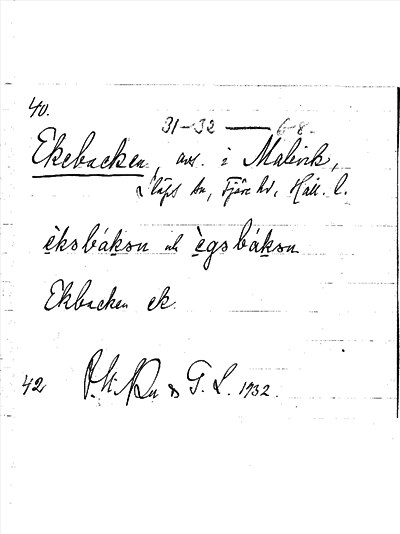 40.
31-32 — 6-8.
Ekebacken, avs. i Malevik,
Släps sn, Fjäre hd, Hall. l.
èksbákən ock ègsbákən
Ekbacken ek.
42 G. L. 1932.